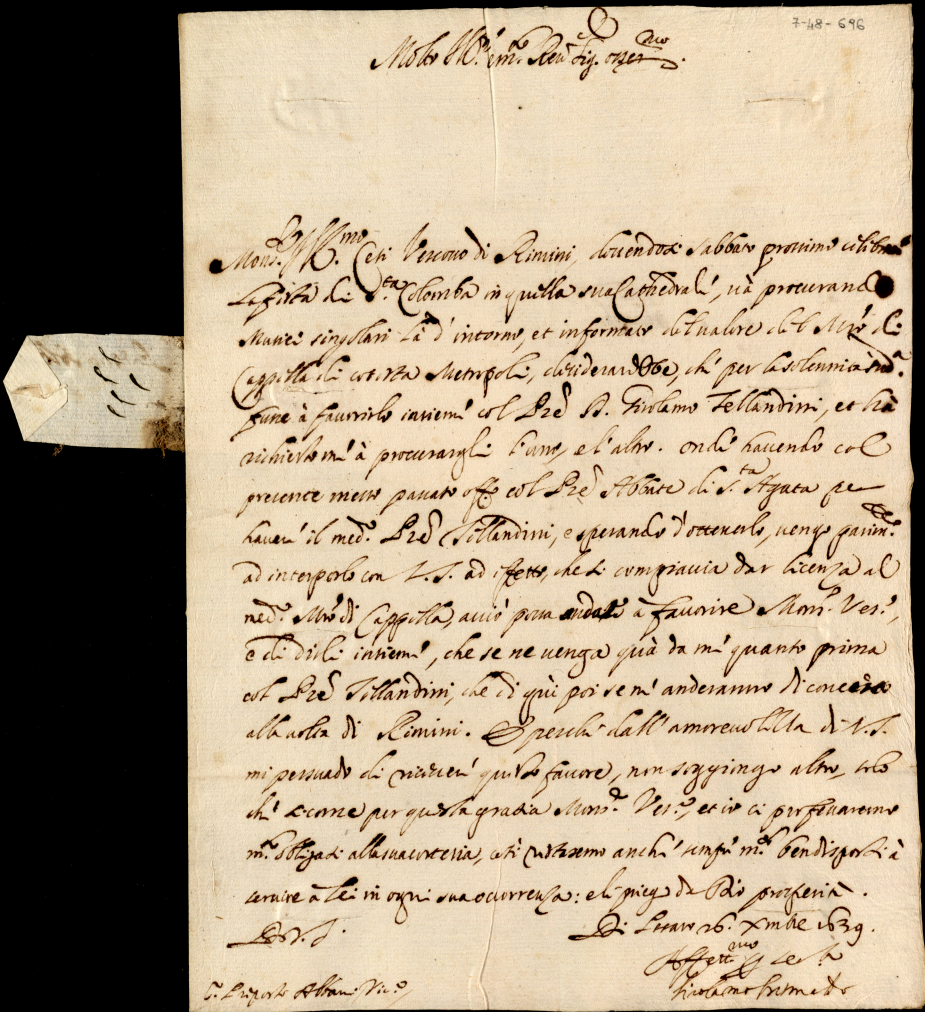 7-48-696
Molto Ill.re et m.to Rev.do Sig. osser.mo
Mons.r Ill.mo Cesi Vescovo di Rimini, dovendosi sabbato prossimo celibrare
la festa di S.ta Colomba in quella sua Cathedrale, và procurando
Musici singolari là d'intorno, et informato del valore del Mro di
Cappella di cotesta Metropoli, desiderarebbe, che per la solennità sud.a
fusse à favorirlo insieme col Pre D. Girolamo Fellandini, et hà
richiesto me à procurargli l'uno, e l'altro. Onde havendo col
presente messo passato off.o col Pre Abbate di S.ta Agata per
havere il med.o Pre Fillandini, e sperando d'ottenerlo, vengo parim.te
ad interporlo con V.S. ad effetto, che si compiaccia dar licenza al
med.o Mro di Cappella, acciò possa andare à favorire Mons.r Ves.o,
e di dirli insieme, che se ne venga quà da me quanto prima
col Pre Fillandini, che di quì poi se n'anderanno di concerto
alla volta di Rimini. E perche dall'amorevolezza di V.S.
mi persuado di ricevere questo favore, non soggiungo altro, solo
che si come per questa gratia Mons.r Ves.o, et io ci professaremo
m.to obligati alla sua cortesia, così restaremo anche sempre m.to bendisposti à
servire à lei in ogni sua occorrenza: e le prego da Dio prosperità.
Di V.S.
Di Pesaro 26. Xmbre 1639.
Affett.mo
Girolamo
S.r Preposto Albani Vic.o